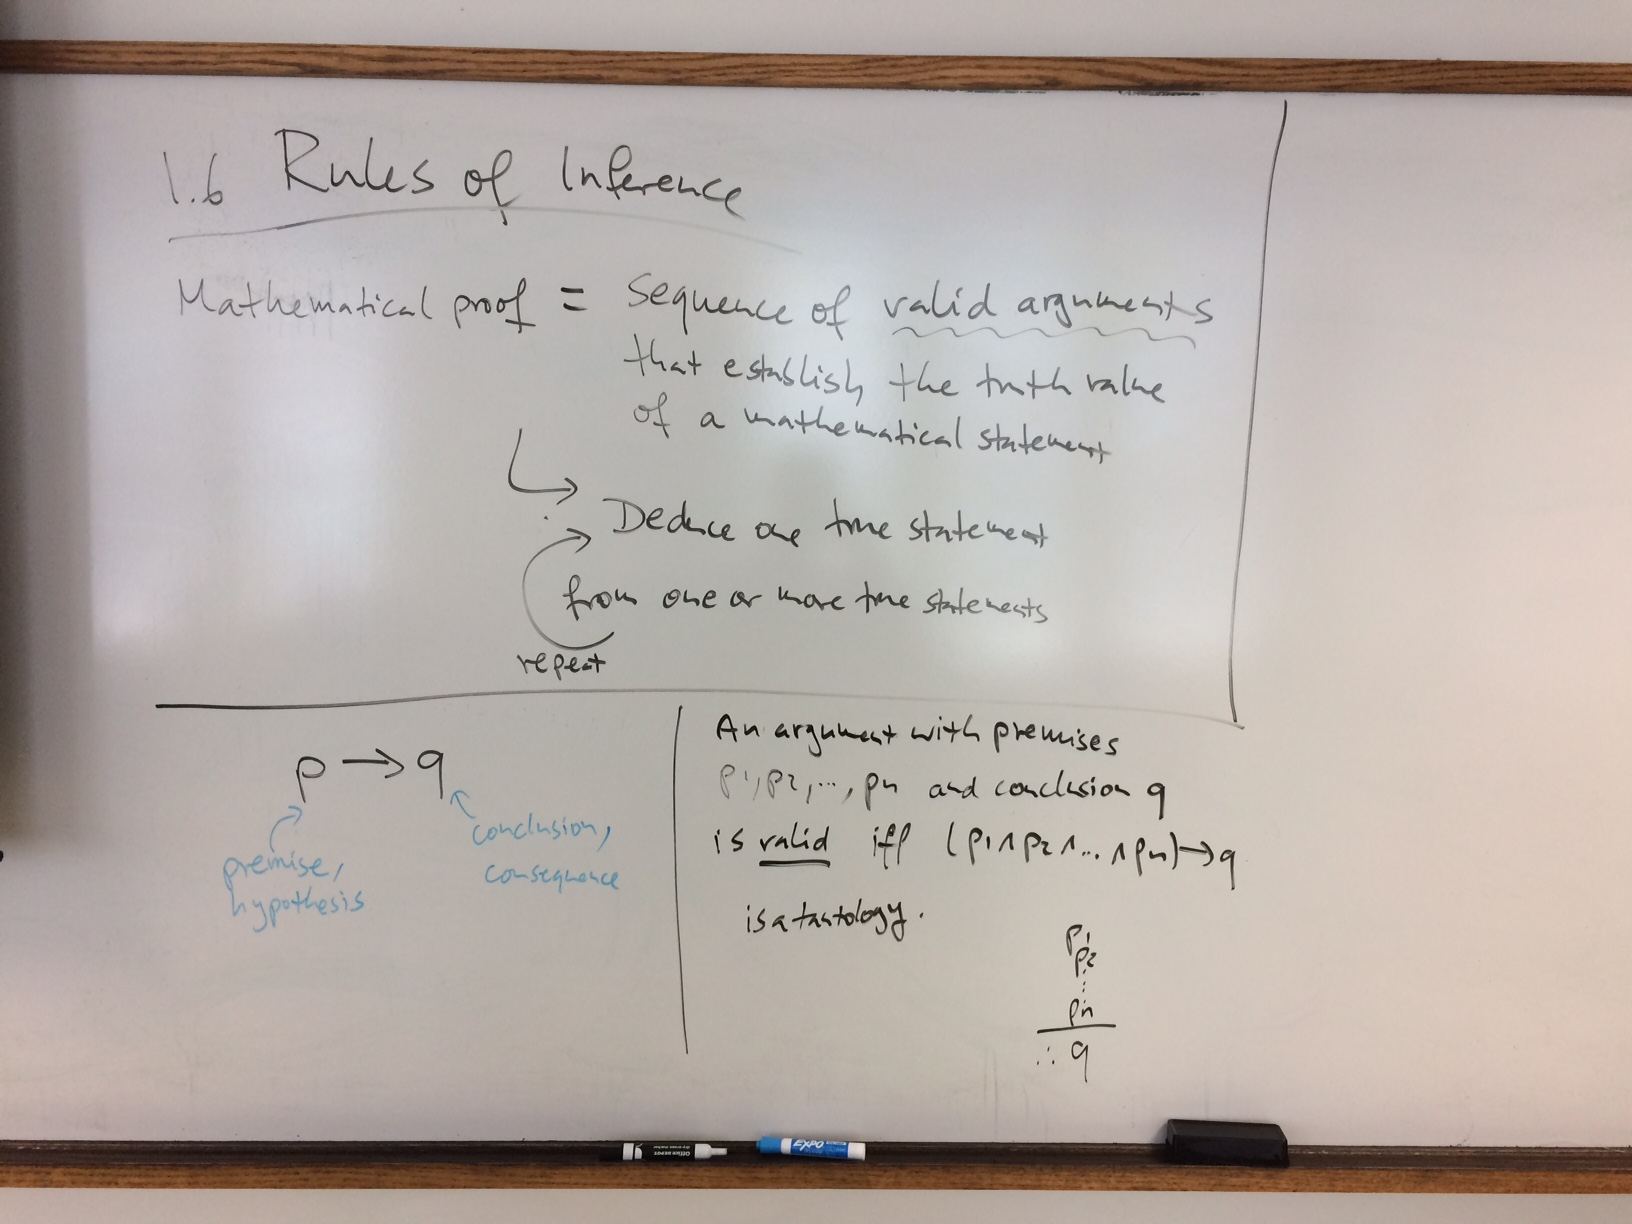 1.6 Rules of Inference
Mathematical proof = sequence of valid arguments
that establish the truth value
of a mathematical statement
Deduce one true statement
from one or more true statements
repeat
p → q
premise,
hypothesis
conclusion,
consequence
An argument with premises
p1, p2, ..., pn and conclusion q
is valid iff (p1 ∧ p2 ∧ ... ∧ pn) → q
is a tautology.
p1
p2
⋮
pn
∴ q
Office DEPOT
EXPO